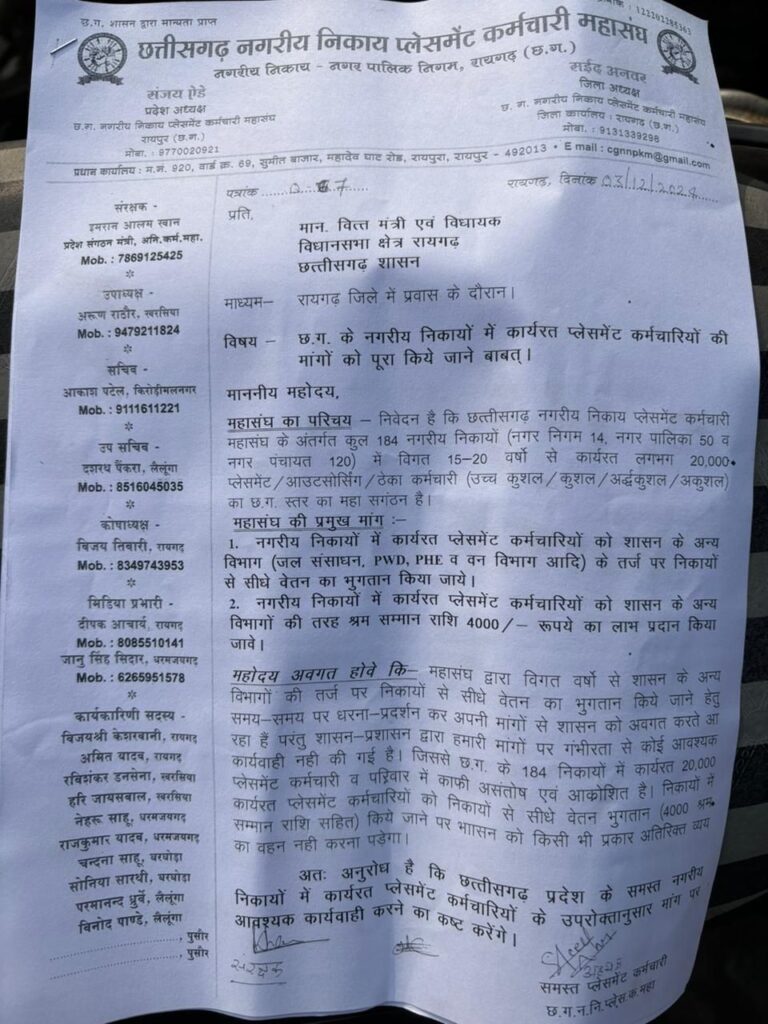 छ.ग. शासन द्वारा मान्यता प्राप्त
छत्तीसगढ़ नगरीय निकाय प्लेसमेंट कर्मचारी महासंघ
नगरीय निकाय - नगर पालिक निगम, रायगढ़ (छ.ग.)
संजय ऐडे
प्रदेश अध्यक्ष
छ.ग. नगरीय निकाय प्लेसमेंट कर्मचारी महासंघ
रायपुर (छ.ग.)
मोबा. : 9770020921
सईद अनवर
जिला अध्यक्ष
छ. ग. नगरीय निकाय प्लेसमेंट कर्मचारी महासंघ
जिला कार्यालय : रायगढ़ (छ.ग.)
मोबा. : 9131339296
प्रधान कार्यालय : म.नं. 920, वार्ड क्र. 69, सुमीत बाजार, महादेव घाट रोड, रायपुरा, रायपुर - 492013 • E mail : cgnnpkm@gmail.com
पत्रांक
रायगढ़, दिनांक 03/12/2024
संरक्षक -
इमरान आलम खान
प्रदेश संगठन मंत्री, अनि.कर्म.महा.
Mob. : 7869125425
उपाध्यक्ष -
अरूण राठौर, खरसिया
Mob. : 9479211824
सचिव -
आकाश पटेल, किरोड़ीमलनगर
Mob. : 9111611221
उप सचिव -
दशरथ पैंकरा, लैलूंगा
Mob. : 8516045035
कोषाध्यक्ष -
विजय तिवारी, रायगढ़
Mob. : 8349743953
मिडिया प्रभारी -
दीपक आचार्य, रायगढ़
Mob. : 8085510141
जानु सिंह सिदार, धरमजयगढ़
Mob. : 6265951578
कार्यकारिणी सदस्य -
विजयश्री केशरवानी, रायगढ़
अमित यादव, रायगढ़
रविशंकर डनसेना, खरसिया
हरि जायसबाल, खरसिया
नेहरू साहू, धरमजयगढ़
राजकुमार यादव, धरमजयगढ़
चन्दना साहू, घरघोड़ा
सोनिया सारथी, घरघोड़ा
परमानन्द ध्रुर्वे, लैलूंगा
विनोद पाण्डे, लैलूंगा
, पुसौर
, पुसौर
प्रति,
मान. वित्त मंत्री एवं विधायक
विधानसभा क्षेत्र रायगढ़
छत्तीसगढ़ शासन
माध्यम– रायगढ़ जिले में प्रवास के दौरान।
विषय – छ.ग. के नगरीय निकायों में कार्यरत प्लेसमेंट कर्मचारियों की
मांगों को पूरा किये जाने बाबत्।
माननीय महोदय,
महासंघ का परिचय – निवेदन है कि छत्तीसगढ़ नगरीय निकाय प्लेसमेंट कर्मचारी
महासंघ के अंतर्गत कुल 184 नगरीय निकायों (नगर निगम 14, नगर पालिका 50 व
नगर पंचायत 120) में विगत 15–20 वर्षो से कार्यरत लगभग 20,000
प्लेसमेंट/आउटसोर्सिंग/ठेका कर्मचारी (उच्च कुशल/कुशल/अर्द्धकुशल/अकुशल)
का छ.ग. स्तर का महा सगंठन है।
महासंघ की प्रमुख मांग :–
1. नगरीय निकायों में कार्यरत प्लेसमेंट कर्मचारियों को शासन के अन्य
विभाग (जल संसाधन, PWD, PHE व वन विभाग आदि) के तर्ज पर निकायों
से सीधे वेतन का भुगतान किया जाये।
2. नगरीय निकायों में कार्यरत प्लेसमेंट कर्मचारियों को शासन के अन्य
विभागों की तरह श्रम सम्मान राशि 4000/– रूपये का लाभ प्रदान किया
जावे।
महोदय अवगत होवे कि– महासंघ द्वारा विगत वर्षो से शासन के अन्य
विभागों की तर्ज पर निकायों से सीधे वेतन का भुगतान किये जाने हेतु
समय–समय पर धरना–प्रदर्शन कर अपनी मांगों से शासन को अवगत करते आ
रहा हैं परंतु शासन–प्रशासन द्वारा हमारी मांगों पर गंभीरता से कोई आवश्यक
कार्यवाही नही की गई है। जिससे छ.ग. के 184 निकायों में कार्यरत 20,000
प्लेसमेंट कर्मचारी व परिवार में काफी असंतोष एवं आकोशित है। निकायों में
कार्यरत प्लेसमेंट कर्मचारियों को निकायों से सीधे वेतन भुगतान (4000 श्रम
सम्मान राशि सहित) किये जाने पर भाासन को किसी भी प्रकार अतिरिक्त व्यय
का वहन नही करना पड़ेगा।
अतः अनुरोध है कि छत्तीसगढ़ प्रदेश के समस्त नगरीय
निकायों में कार्यरत प्लेसमेंट कर्मचारियों के उपरोक्तानुसार मांग पर
आवश्यक कार्यवाही करने का कष्ट करेंगे।
संरक्षक
अध्यक्ष
समस्त प्लेसमेंट कर्मचारी
छ.ग.न.नि.प्लेस.क.महा